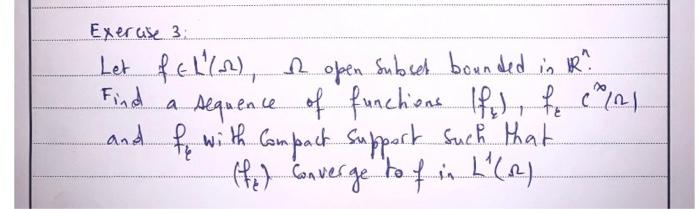 Exercise 3:
Let f ∈ L¹(Ω), Ω open subset bounded in ℝⁿ.
Find a sequence of functions (f_ε), f_ε C^∞(Ω)
and f_ε with compact support such that
(f_ε) converge to f in L¹(Ω)